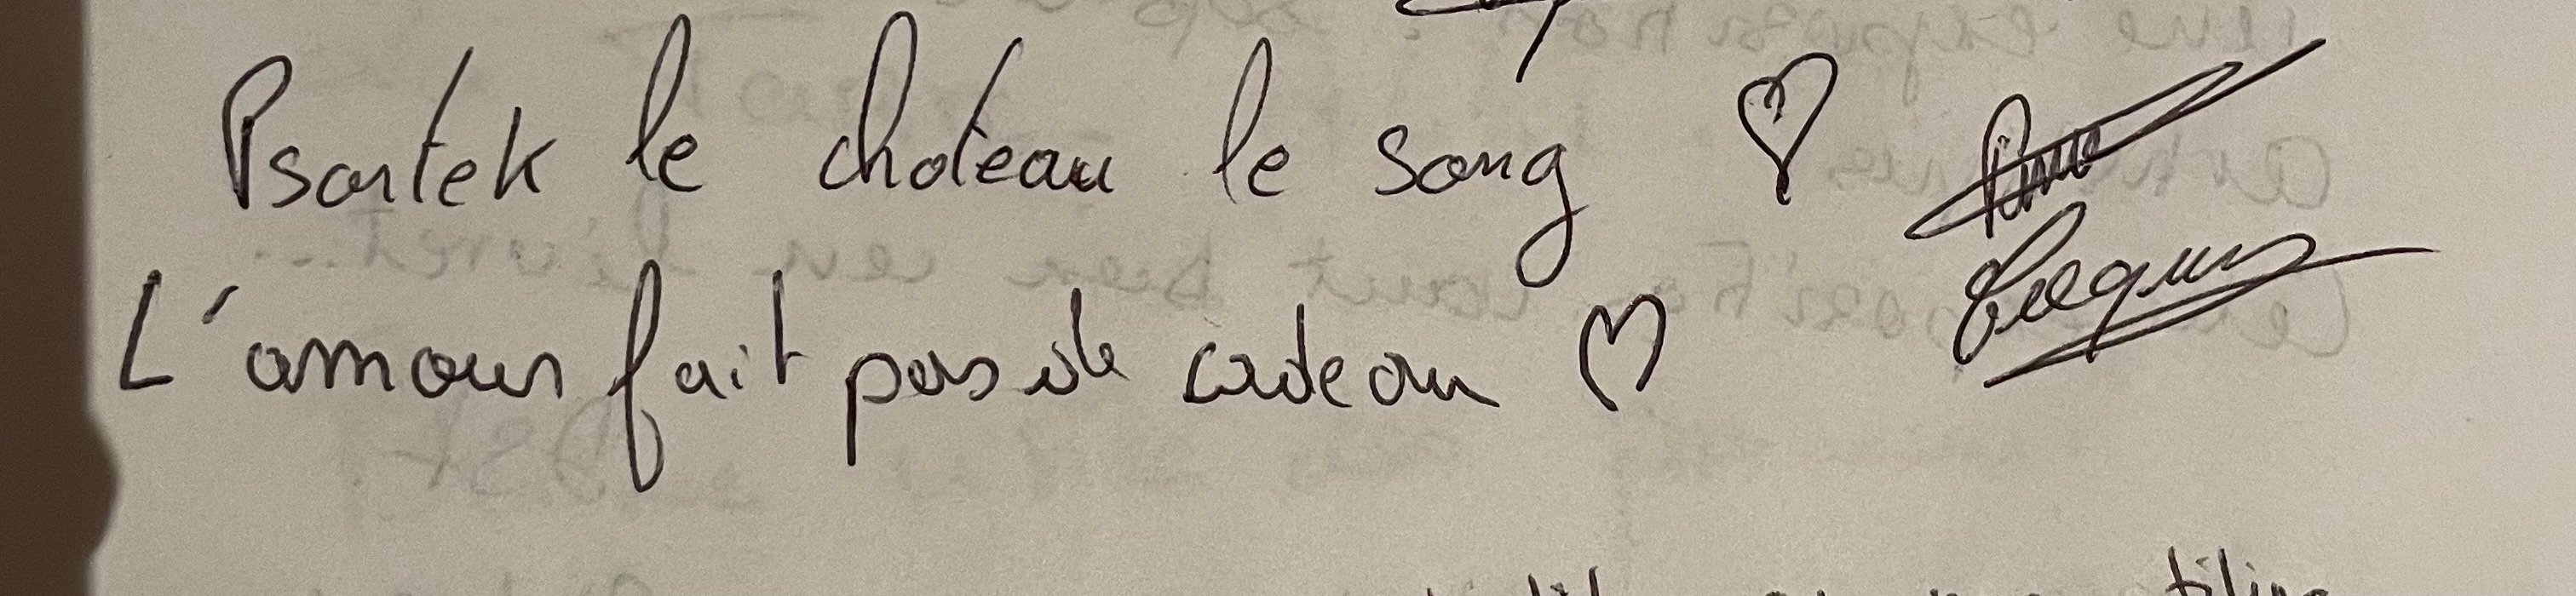 Psartek le chateau le sang ♡
L'amour fait pas de cadeau ♡